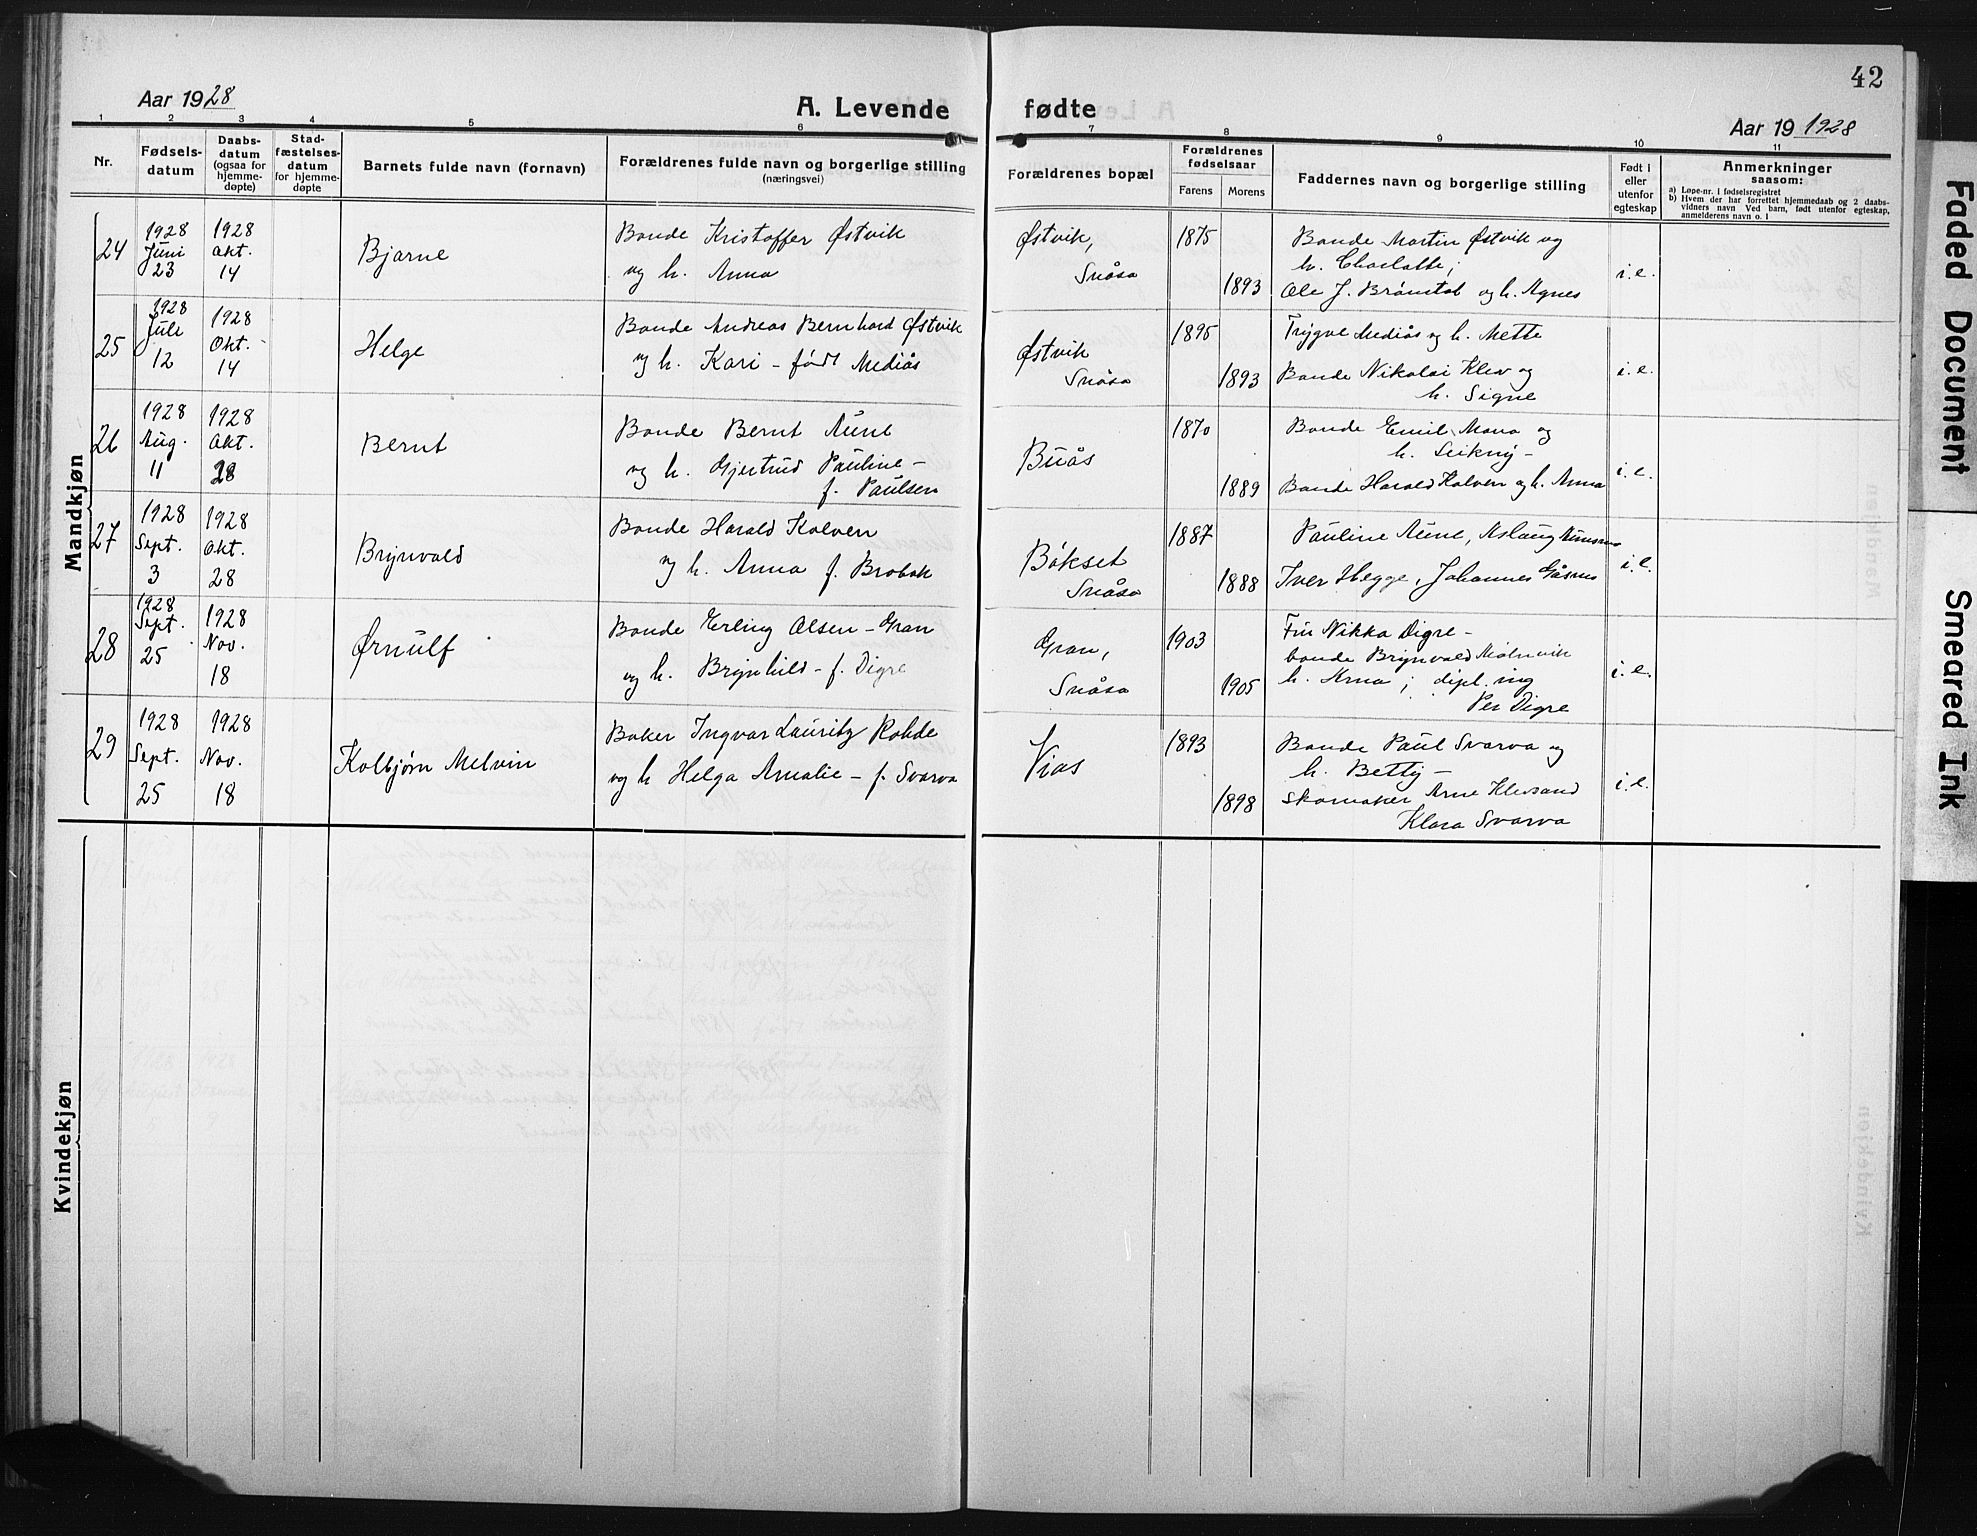 42
Aar 1928
A. Levende fødte
Aar 19 1928
1 2 3 4 5 6 7 8 9 10 11
Nr.
Fødsels-
datum
Daabs-
datum
(ogsaa for
hjemme-
døpte)
Stad-
fæstelses-
datum
for hjemme-
døpte
Barnets fulde navn (fornavn)
Forældrenes fulde navn og borgerlige stilling
(næringsvei)
Forældrenes bopæl
Forældrenes
fødselsaar
Farens Morens
Faddernes navn og borgerlige stilling
Født i
eller
utenfor
egteskap
Anmerkninger
saasom:
a) Løpe-nr. i fødselsregistret
b) Hvem der har forrettet hjemmedaab og 2 daabs-
vidners navn Ved barn, født utenfor egteskap,
anmelderens navn o. l
Mandkjøn
24
1928
Juni
23
1928
Okt.
14
Bjarne
Bonde Kristoffer Østvik
og h. Anna
Østvik,
Snåsa
1875
1893
Bonde Martin Østvik og
h. Charlotte;
Ole J. Brønstad og h. Agnes
i.e.
25
1928
Juli
12
1928
Okt.
14
Helge
Bonde Andreas Bernhard Østvik
og h. Kari - født Mediås
Østvik
Snåsa
1895
1893
Trygve Mediås og h. Mette
Bonde Nikolai Klev og
h. Signe
i.e.
26
1928
Aug.
11
1928
Okt.
28
Bernt
Bonde Bernt Aune
og h. Gjertrud Pauline -
f. Paulsen
Buås
1870
1889
Bonde Emil Mona og
h.
Bonde Harald Kolven og h. Anna
i.e.
27
1928
Sept.
3
1928
Okt.
28
Brynvald
Bonde Harald Kolven
og h. Anna f. Brobak
Bökset
Snåsa
1887
1888
Pauline Aune, Aslaug
Iver Hegge, Johannes Gåsnes
i.e.
28
1928
Sept.
25
1928
Nov.
18
Ørnulf
Bonde Erling Olsen - Gran
og h. Brynhild - f. Digre
Gran,
Snåsa
1903
1905
Fru Nikka Digre -
bonde Brynvald
h. Arna; dipl. ing
Per Digre
i.e.
29
1928
Sept.
25
1928
Nov.
18
Kolbjørn Melvin
Baker Ingvar Lauritz Rohde
og h Helga Amalie - f. Svarva
Vias
1893
1898
Bonde Paul Svarva og
h. Betty -
Skomaker Arne Klevsand
Klara Svarva
i.e.
Kvindekjøn
Faded Document
Smeared Ink